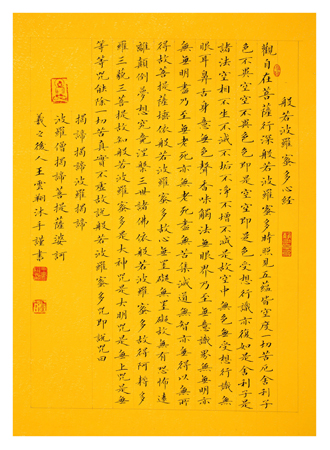 般若波羅蜜多心經
觀自在菩薩行深般若波羅蜜多時照見五蘊皆空度一切苦厄舍利子
色不異空空不異色色即是空空即是色受想行識亦復如是舍利子是
諸法空相不生不滅不垢不淨不增不減是故空中無色無受想行識無
眼耳鼻舌身意無色聲香味觸法無眼界乃至無意識界無無明亦
無無明盡乃至無老死亦無老死盡無苦集滅道無智亦無得以無所
得故菩提薩埵依般若波羅蜜多故心無罣礙無罣礙故無有恐怖遠
離顛倒夢想究竟涅槃三世諸佛依般若波羅蜜多故得阿耨多
羅三藐三菩提故知般若波羅蜜多是大神咒是大明咒是無上咒是無
等等咒能除一切苦真實不虛故說般若波羅蜜多咒即說咒曰
揭諦揭諦波羅揭諦
波羅僧揭諦菩提薩婆訶
羲之後人王雲翔沐手謹書